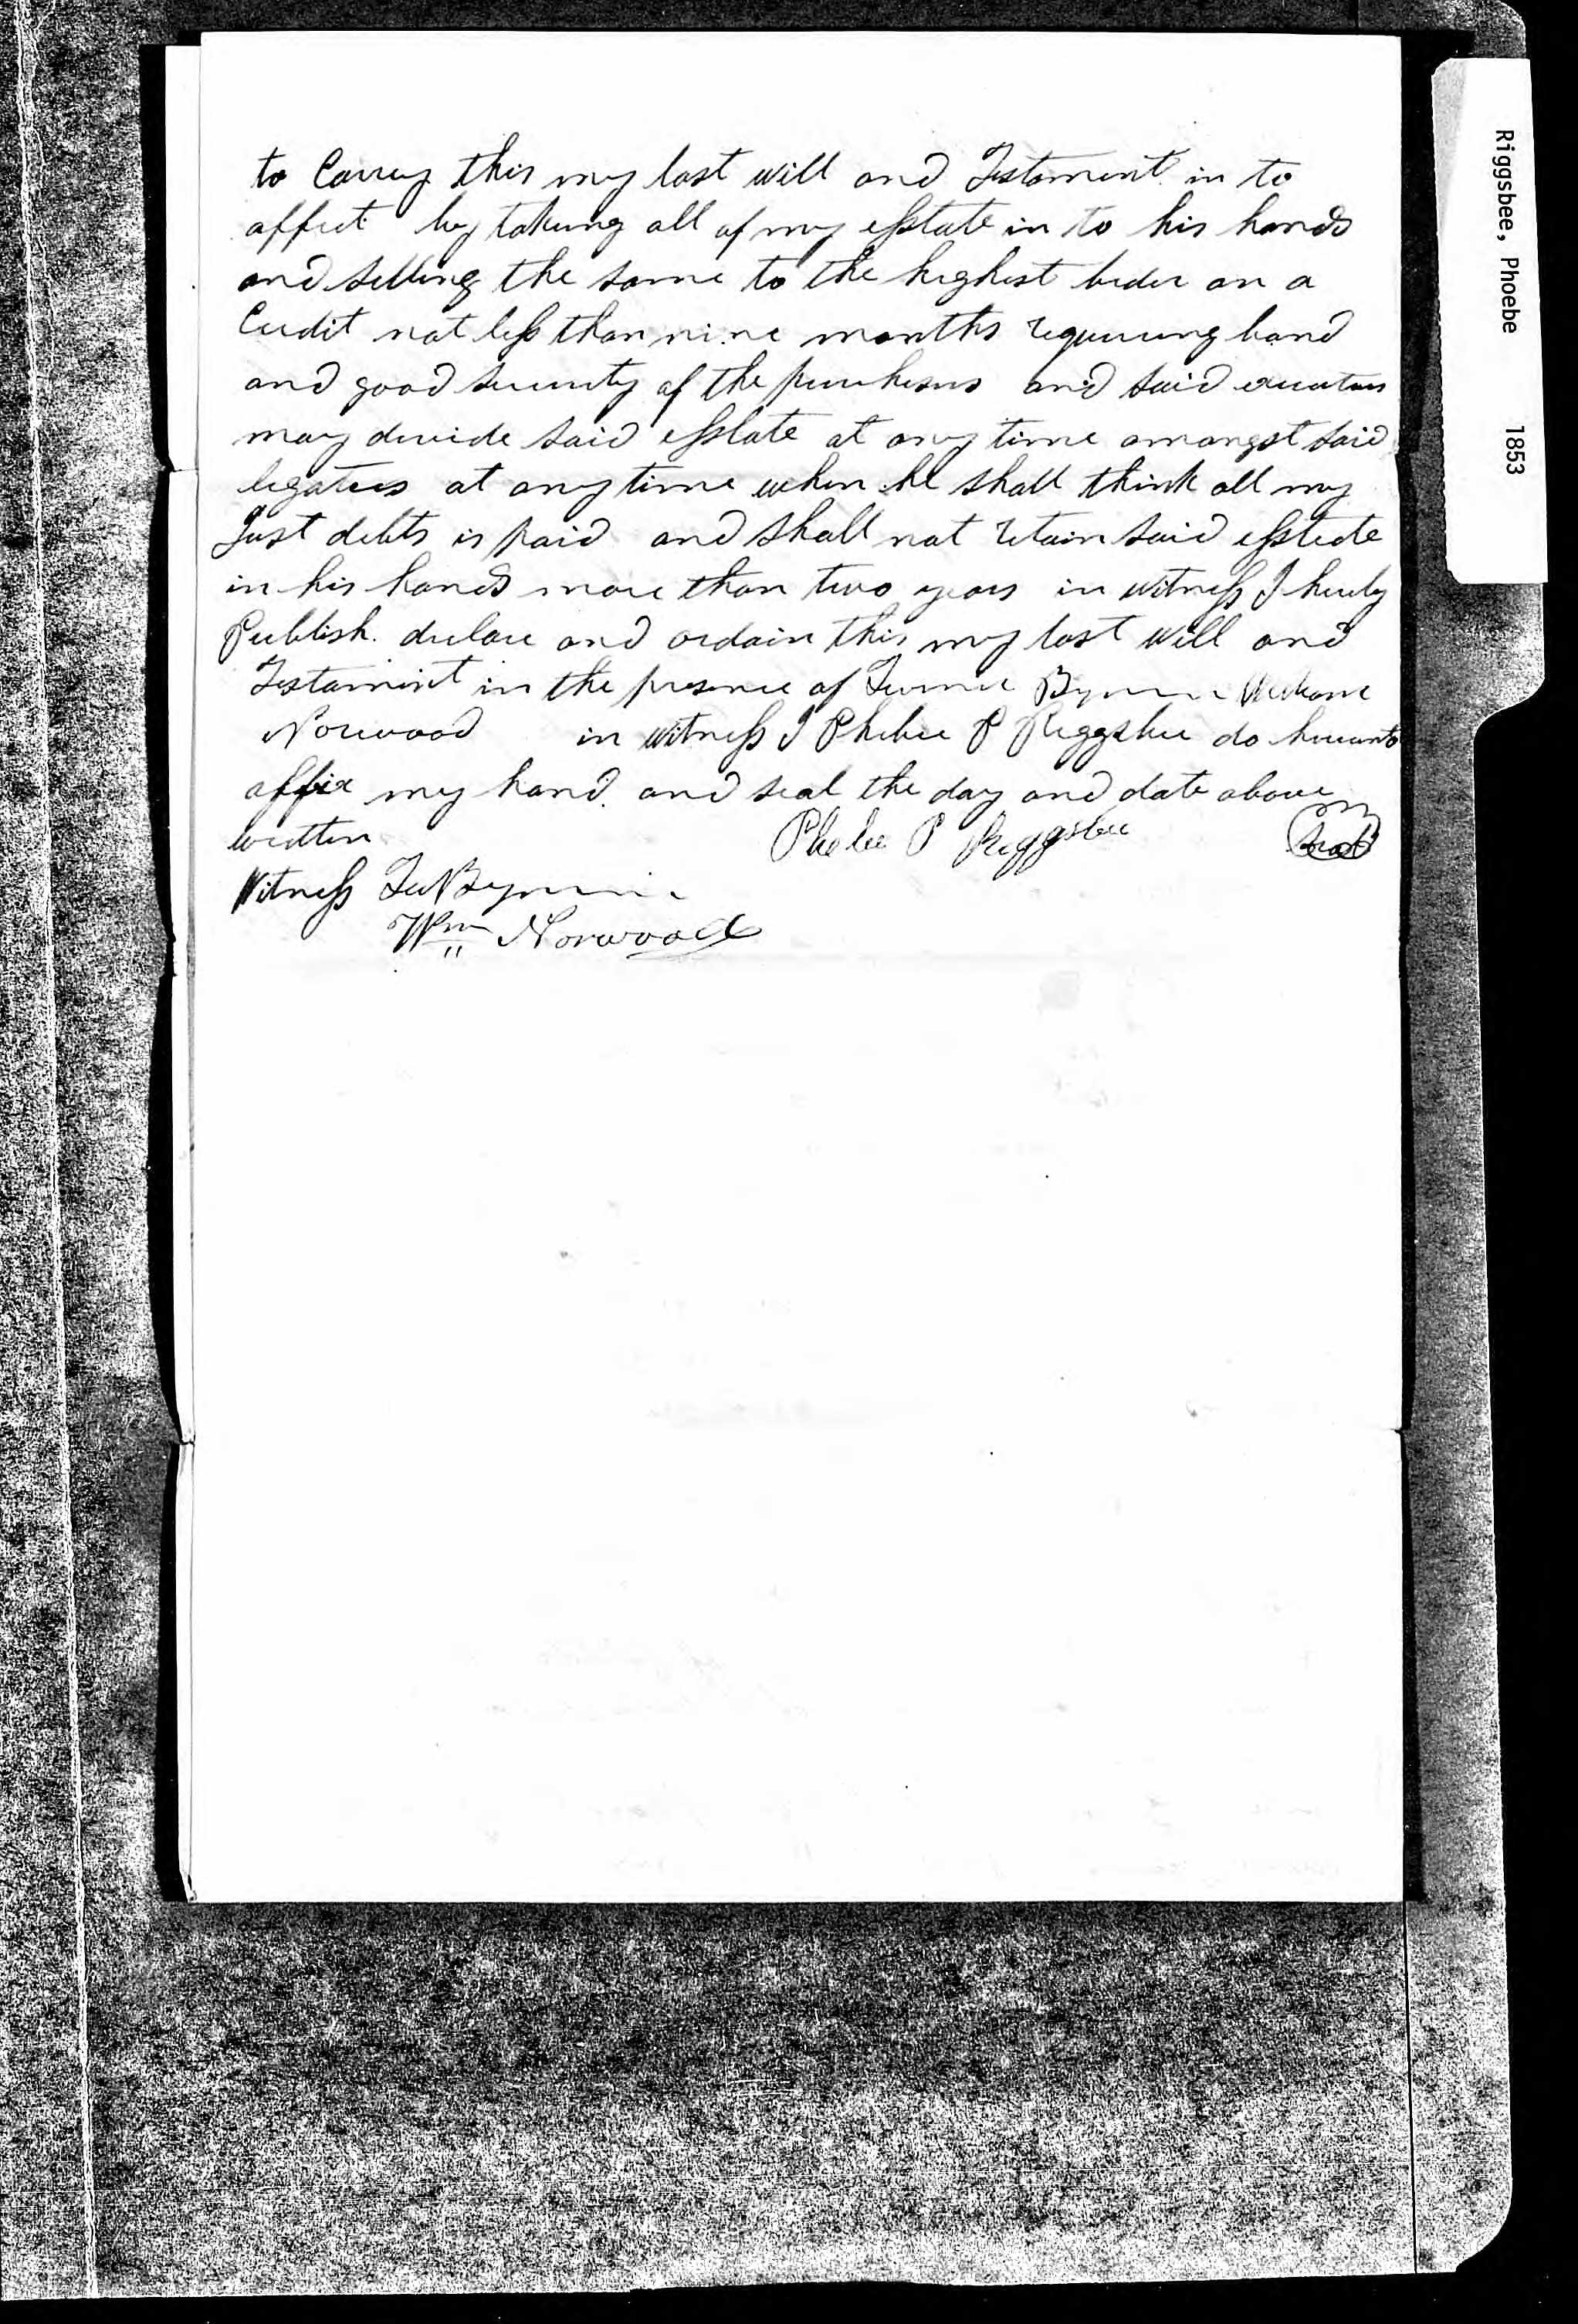 to Carrey this my last will and Testament in to
affect by takeing all of my esstate in to his hands
and selling the same to the highest bider on a
Credit not less than nine months requireing bond
and good security of the purchesers and said executors
may devide said esstate at any time amongst said
legatees at any time when he shall think all my
Just debts is paid and shall not retain said esstate
in his hands more than two years in witness I hereby
Publish. declare and ordain this my last will and
Testament in the presence of Bynum
Norwood in witness I Phebee P Riggsbee do hereunto
affix my hand and seal the day and date above
written Phebee P Riggsbee Seal
Witness Bynum
Wm Norwood
Riggsbee, Phoebe 1853